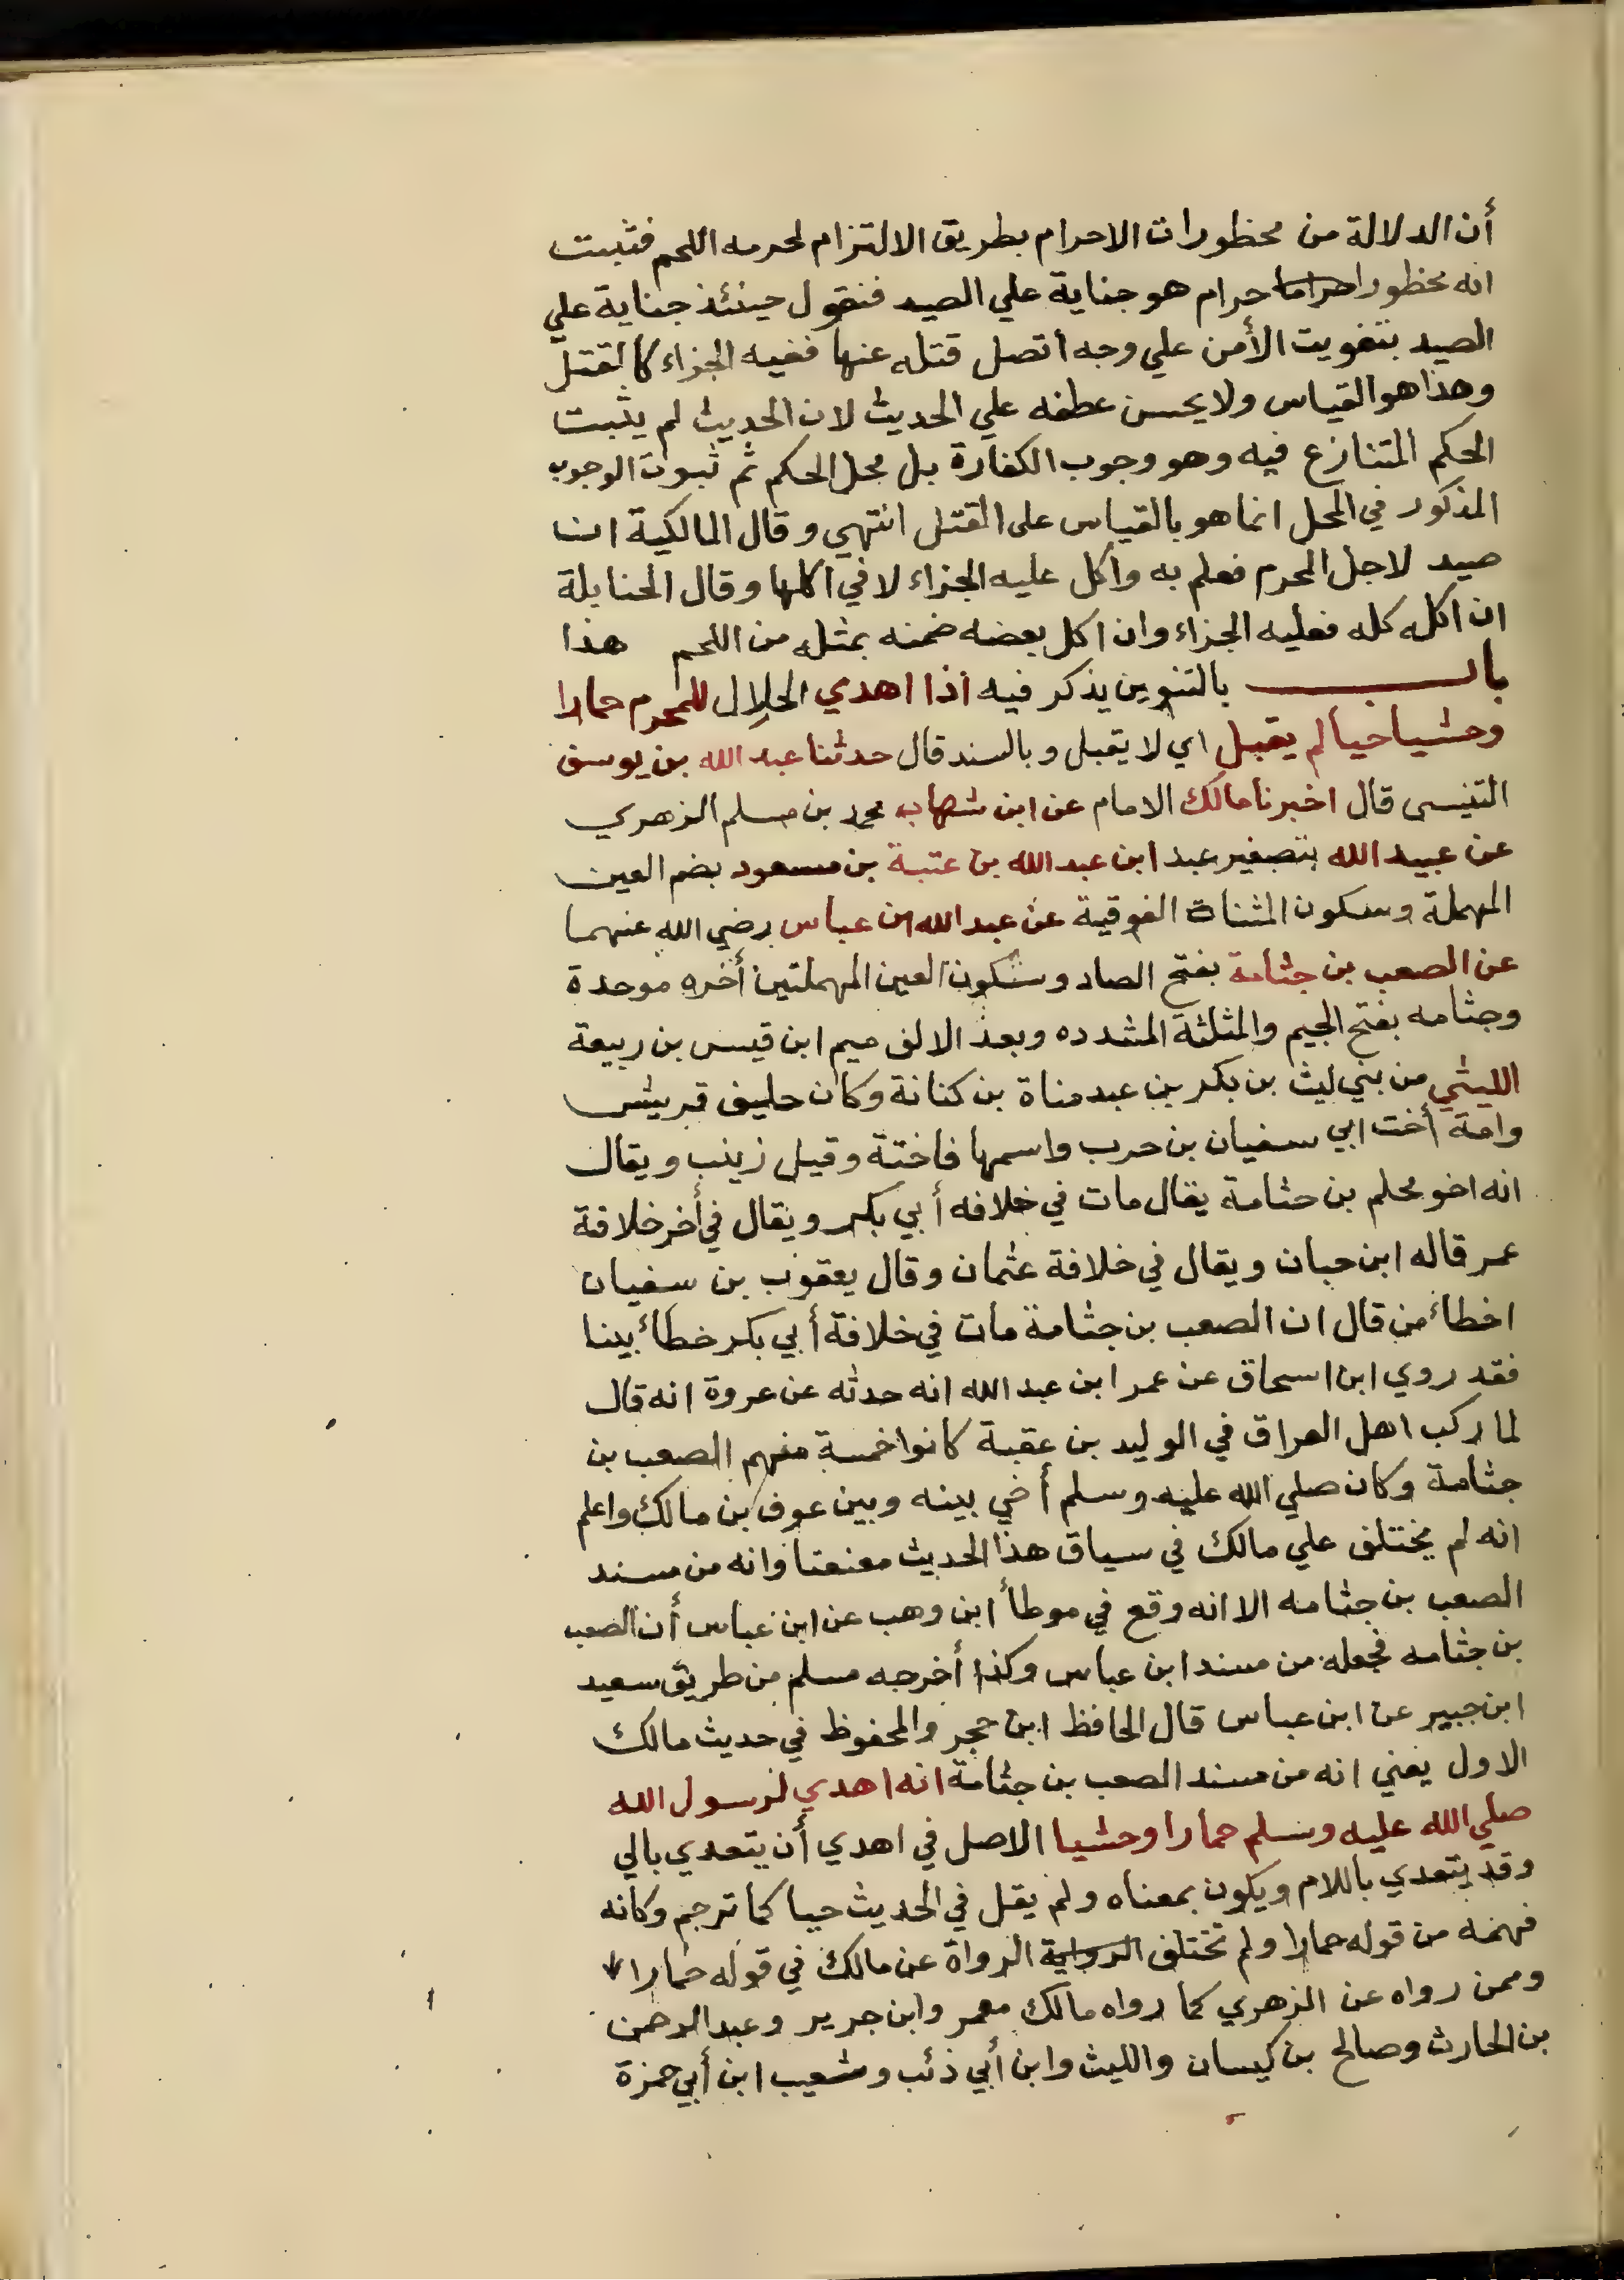 أن الدلالة من محظورات الاحرام بطريق الالتزام لحرمه اللحم فثبت
انه محظور احراما حرام هو جناية علي الصيد فنقول حينئذ جناية علي
الصيد بتفويت الأمن علي وجه اتصل قتله عنها ففيه الجزاء كالقتل
وهذا هو القياس ولا يحسن عطفه علي الحديث لان الحديث لم يثبت
الحكم المتنازع فيه وهو وجوب الكفارة بل محل الحكم ثم ثبوت الوجوب
المذكور في المحل انما هو بالقياس على القتل انتهي وقال المالكية ان
صيد لاجل المحرم فعلم به واكل عليه الجزاء لا في اكلها وقال الحنابلة
ان اكله كله فعليه الجزاء وان اكل بعضه ضمنه بمثله من اللحم هذا
باب بالتنوين يذكر فيه اذا اهدي الحلال للمحرم حمارا
وحشيا حيا لم يقبل اي لا يقبل وبالسند قال حدثنا عبد الله بن يوسف
التنيسى قال اخبرنا مالك الامام عن ابن شهاب محمد بن مسلم الزهري
عن عبيد الله بتصغير عبد ابن عبد الله بن عتبة بن مسعود بضم العين
المهملة وسكون المثناة الفوقية عن عبد الله ابن عباس رضي الله عنهما
عن الصعب بن جثامة بفتح الصاد وسكون العين المهملتين أخره موحدة
وجثامه بفتح الجيم والمثلثة المشدده وبعد الالف ميم ابن قيس بن ربيعة
الليثي من بني ليث بن بكر بن عبد مناة بن كنانة وكان حليف قريش
وامة أخت ابي سفيان بن حرب واسمها فاختة وقيل زينب ويقال
انه اخو محلم بن حثامة يقال مات في خلافه أبي بكر ويقال في أخر خلافة
عمر قاله ابن حبان ويقال في خلافة عثمان وقال يعقوب بن سفيان
اخطاء من قال ان الصعب بن جثامة مات في خلافة أبي بكر خطاء بينا
فقد روي ابن اسحاق عن عمر ابن عبد الله انه حدثه عن عروة انه قال
لما ركب اهل العراق في الوليد بن عقبة كانوا خمسة منهم الصعب بن
جثامة وكان صلي الله عليه وسلم أخي بينه وبين عوف بن مالك واعلم
انه لم يختلف علي مالك في سياق هذا الحديث معنعنا وانه من مسند
الصعب بن جثامه الا انه وقع في موطأ ابن وهب عن ابن عباس أن الصعب
بن جثامه فجعله من مسند ابن عباس وكذا أخرجه مسلم من طريق سعيد
ابن جبير عن ابن عباس قال الحافظ ابن حجر والمحفوظ في حديث مالك
الاول يعني انه من مسند الصعب بن جثامة انه اهدي لرسول الله
صلي الله عليه وسلم حمارا وحشيا الاصل في اهدي أن يتعدي بالي
وقد يتعدي باللام ويكون بمعناه ولم يقل في الحديث حيا كما ترجم وكانه
فهمه من قوله حمارا ولم تختلف الرواية الرواة عن مالك في قوله حمارا
وممن رواه عن الزهري كما رواه مالك معمر وابن جرير وعبد الرحمن
بن الحارث وصالح بن كيسان والليث وابن أبي ذئب وشعيب ابن أبي حمزة